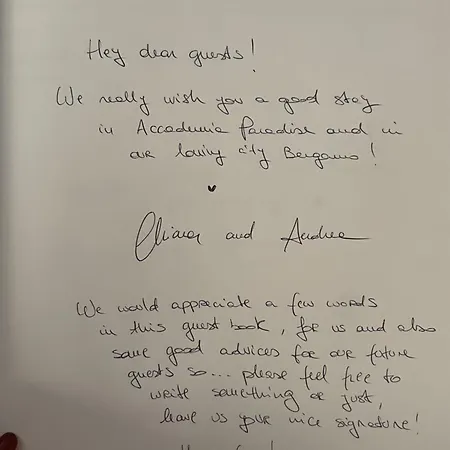 Hey dear guests!
We really wish you a good stay
in Accademia Paradise and in
our loving city Bergamo!
Chiara and Andrea
We would appreciate a few words
in this guest book, for us and also
some good advices for our future
guests so... please feel free to
write something or just,
leave us your nice signature!